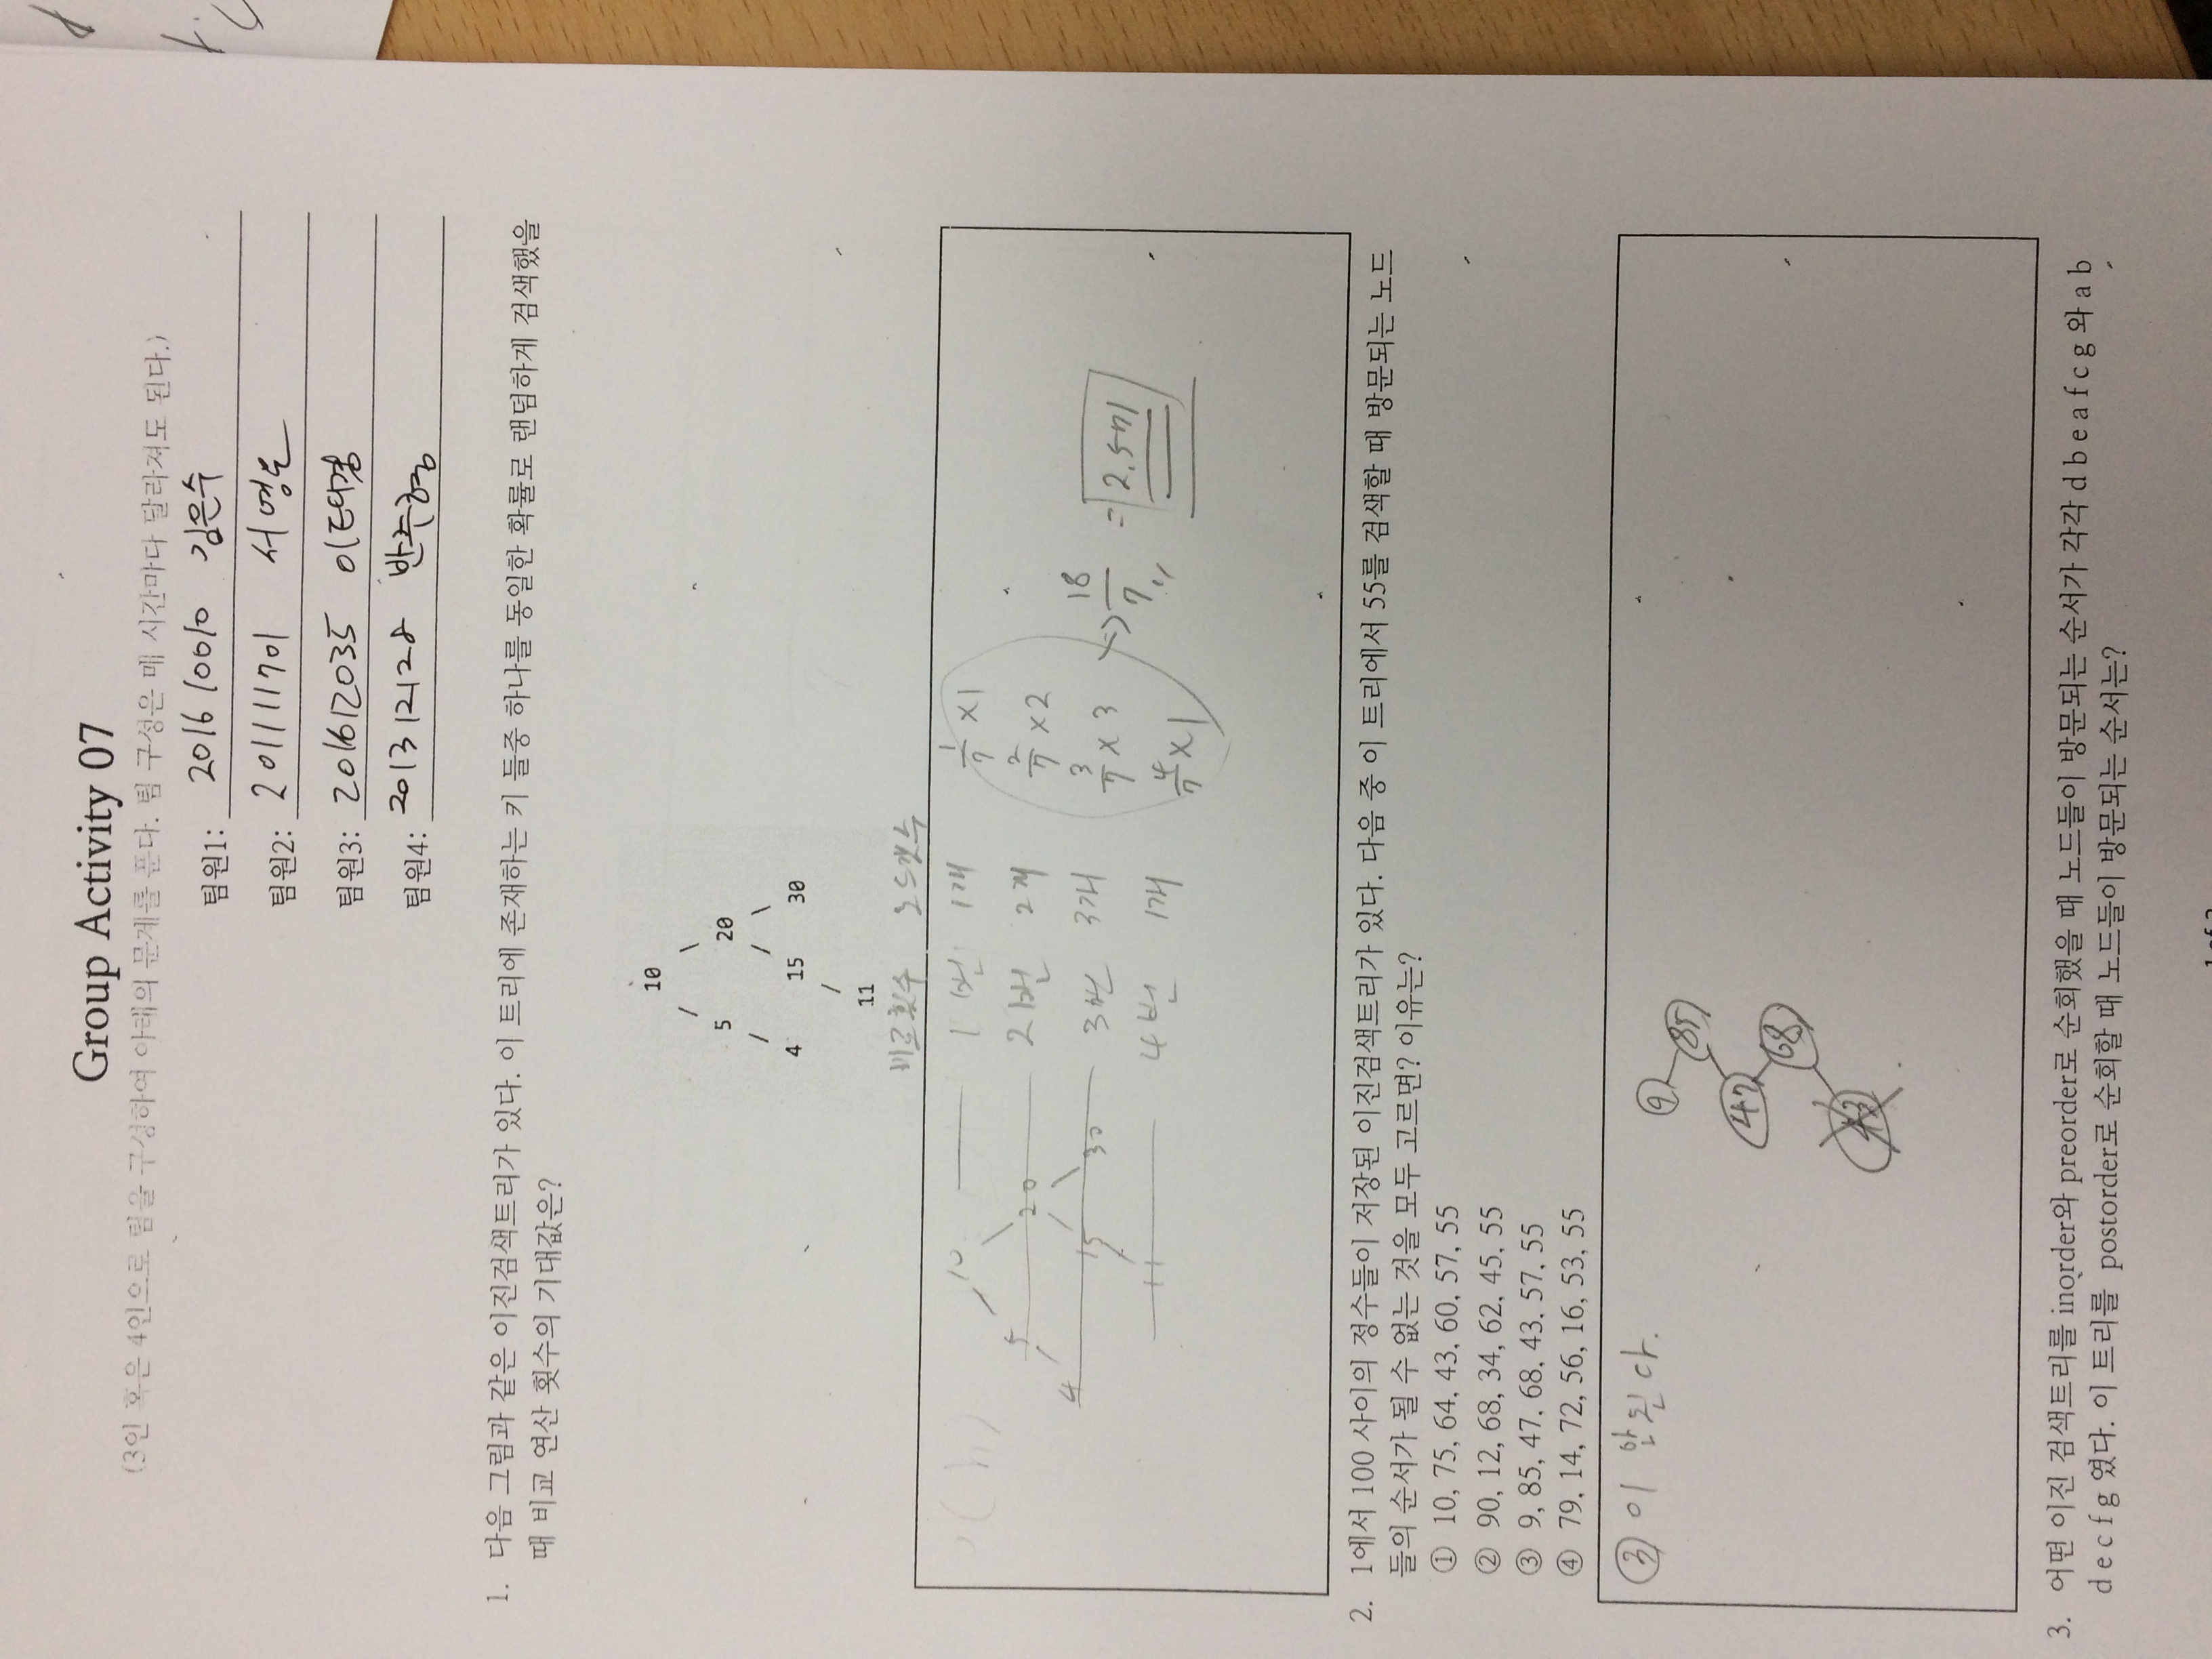 Group Activity 07
(3인 혹은 4인으로 팀을 구성하여 아래의 문제를 푼다. 팀 구성은 매 시간마다 달라져도 된다.)
팀원1: 201610010 김은수
팀원2: 201111701 서영은
팀원3: 201612035 이태경
팀원4: 201312128 반주형
1. 다음 그림과 같은 이진검색트리가 있다. 이 트리에 존재하는 키 들중 하나를 동일한 확률로 랜덤하게 검색했을
때 비교 연산 횟수의 기대값은?
10
/ \
5 20
/ / \
4 15 30
/
11
비교횟수 노드갯수
10 1번 1개 1/7 ×1
5 20 2번 2개 2/7 ×2
4 15 30 3번 3개 3/7 ×3 => 18/7 = 2.571
11 4번 1개 4/7 ×1
2. 1에서 100 사이의 정수들이 저장된 이진검색트리가 있다. 다음 중 이 트리에서 55를 검색할 때 방문되는 노드
들의 순서가 될 수 없는 것을 모두 고르면? 이유는?
① 10, 75, 64, 43, 60, 57, 55
② 90, 12, 68, 34, 62, 45, 55
③ 9, 85, 47, 68, 43, 57, 55
④ 79, 14, 72, 56, 16, 53, 55
③이 안된다.
9
85
47
68
43
3. 어떤 이진 검색트리를 inorder와 preorder로 순회했을 때 노드들이 방문되는 순서가 각각 d b e a f c g 와 a b
d e c f g 였다. 이 트리를 postorder로 순회할 때 노드들이 방문되는 순서는?